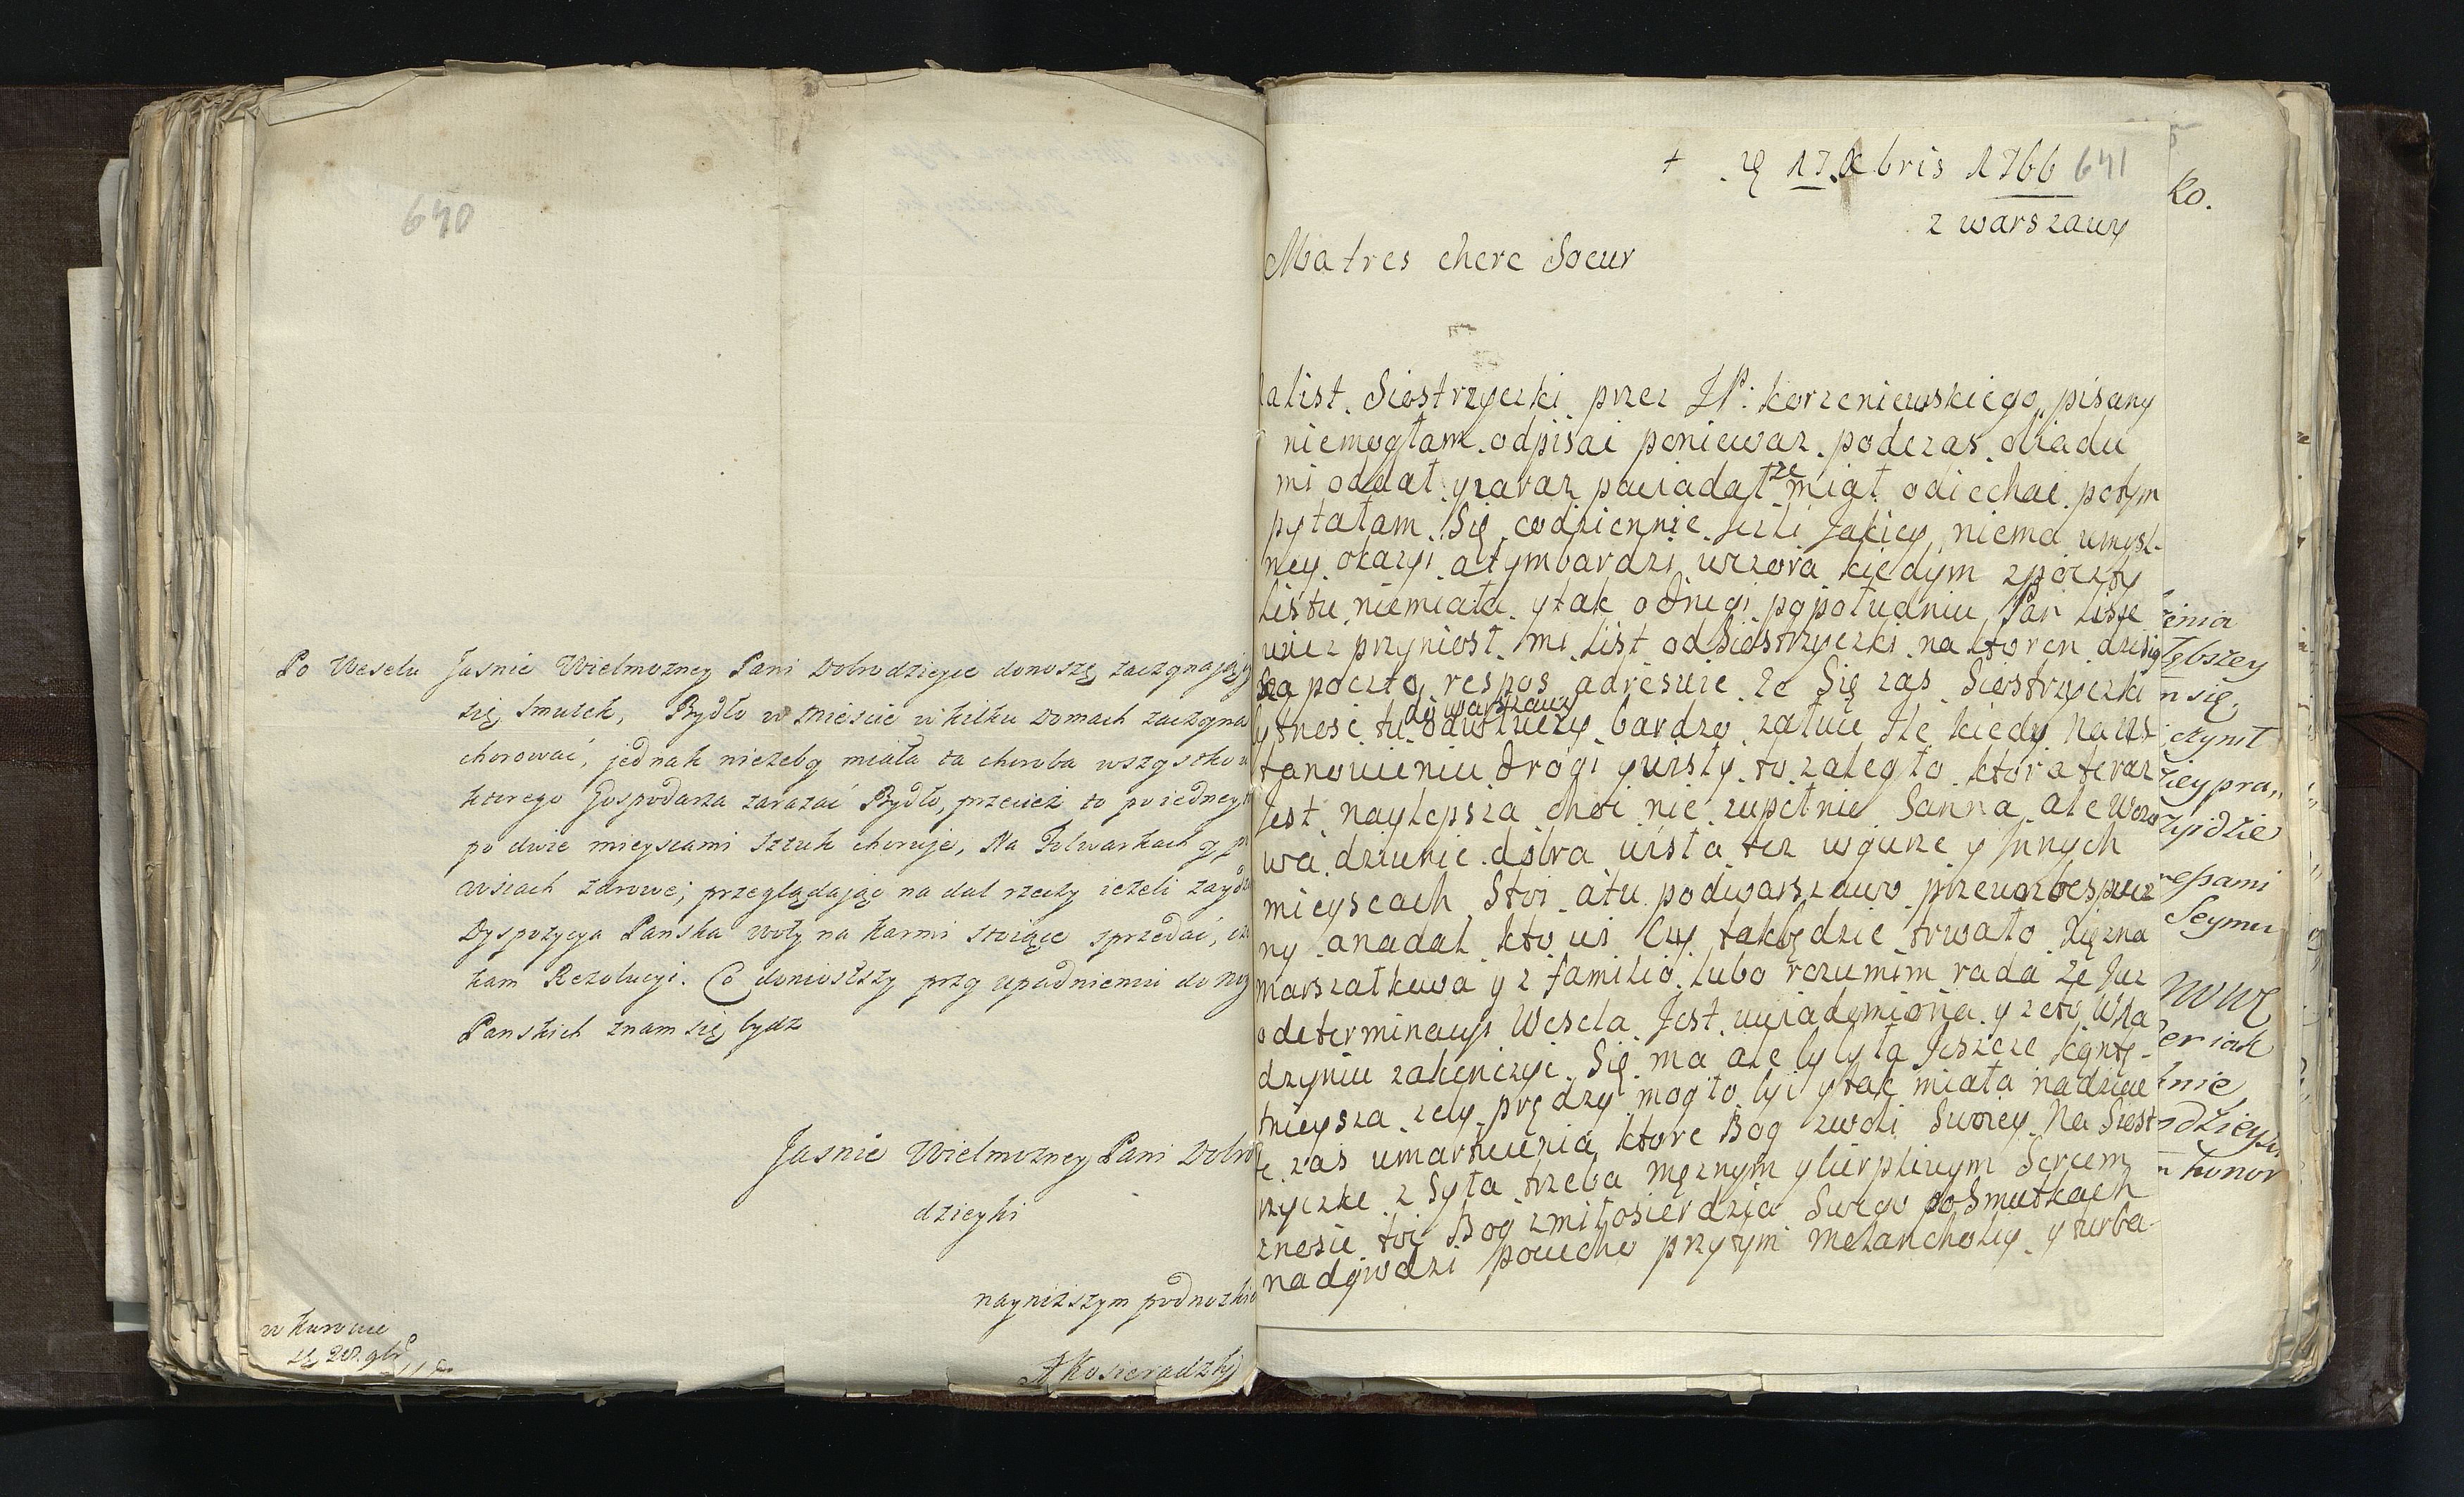 640
Po Weselu Jasnie Wielmozney Pani Dobrodzieyce donoszę zaczynający
się smutek, Bydło w Mieście w kilku Domach zaczyna
chorować, jednak niezeby miała ta choroba wszystko u
ktorego Gospodarza zarazać Bydło, przecież to po iedney
po dwie mieyscami sztuk choruje, Na Folwarkach y
wsiach zdrowe; przeglądając na dal rzeczy iezeli
Dyspozycya Panska woły na Karmi stoiące sprzedać,
kam Rezolucyi. Co doniosłszy przy upadnieniu do nog
Panskich znam się bydz
Jasnie Wielmozney Pani Dobro
dzieyki
nayniższym podnozkie
w Kurowie
A Kosieradzky
+ 17 Xbris 1766 641
z warszawy
Ma tres chere Soeur
list Siostrzyczki przez JP: korzeniewskiego pisany
niemogłam odpisać poniewaz podczas obiadu
mi oddał y zaraz powiadał ze miał odiechać potym
pytałam Się codziennie Jezli Jakiey niema umysl-
ney okazyi a tymbardzi wczora kiedym z poczty
Listu niemiała y tak o drugi popołudniu Pan
przyniosł mi List od Siostrzyczki na ktoren dzisia
poczto respos adresuie ze Się zas Siostrzyczki
bytnosc tu do warszawy odwlecze bardzo załuie Ile kiedy na us
tanowieniu drogi y wisły to zaległo ktora teraz
Jest naylepsza choć nie zupełnie Sanna ale
wa dziwnie dobra wisła tez w gurze y Innych
mieyscach Stoi a tu pod warszawo przewoz bespiecz
ny a nadal kto wi Czy tak będzie trwało Xięzna
marszałkowa y z familio lubo rozumim rada ze Juz
o determinacyi Wesela Jest uwiadomiona y ze to w
dzyniu zakonczyc Się ma ale byłyła Jeszcze kąnte-
tnieysza zeby prędzy mogło być y tak miała nadzieie
te zas umartwienia ktore Bog zwoli Swoiey na Siost
rzyczke z Syła trzeba męznym y cierpliwym Sercem
znosic toć Bog z miłosierdzia Swego po Smutkach
nadgrodzi pociecho przytym melancholiy y turba-
ko.
zenia
łębszey
m się
czynił
ziey pra,,
zyidzie
repami
Seymu
NWW
knie
odzieyki
honor